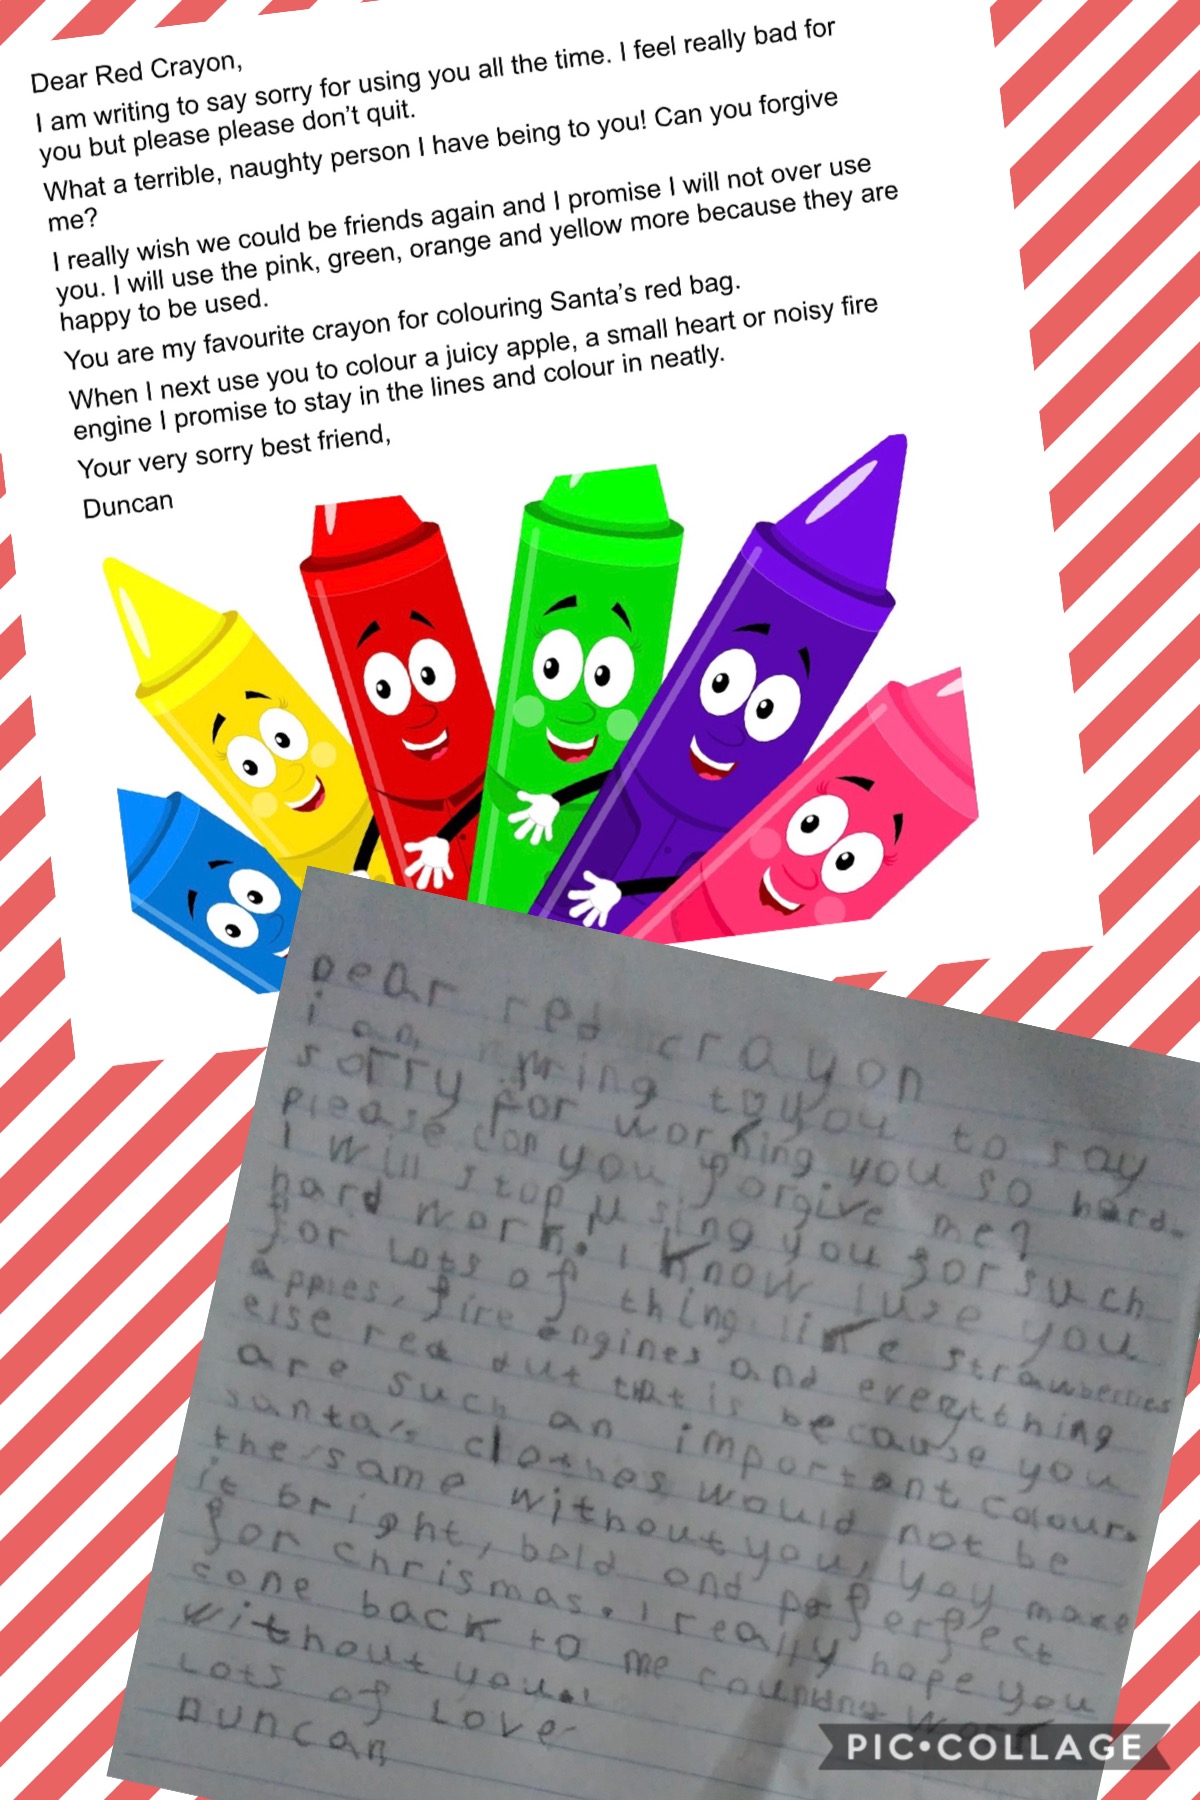 Dear Red Crayon,
I am writing to say sorry for using you all the time. I feel really bad for
you but please please don't quit.
What a terrible, naughty person I have being to you! Can you forgive
me?
I really wish we could be friends again and I promise I will not over use
you. I will use the pink, green, orange and yellow more because they are
happy to be used.
You are my favourite crayon for colouring Santa's red bag.
When I next use you to colour a juicy apple, a small heart or noisy fire
engine I promise to stay in the lines and colour in neatly.
Your very sorry best friend,
Duncan
Dear red crayon
i am to you to say
sorry for working you so hard.
please can you forgive me?
I will stop using you for such
hard work. I know I use you
for lots of thing like strawberries
apples, fire engines and everything
else red but that is because you
are such an important colour.
santa's clothes would not be
the same without you, you make
it bright, bold and perfect
for chrismas. I really hope you
come back to me
without you.
Lots of Love
Duncan
PIC•COLLAGE